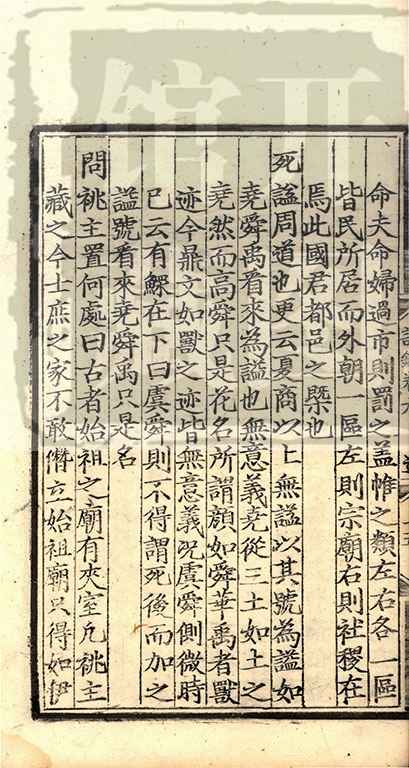 命夫命婦過市則罰之盖帷之類左右各一區
皆民所居而外朝一區左則宗廟右則社稷在
焉此國君都邑之槩也
死謚周道也更云夏商以上無謚以其號為謚如
堯舜禹看来為謚也無意義堯從三土如土之
堯然而高舜只是花名所謂顔如舜華禹者獸
迹今鼎文如獸之迹皆無意義况虞舜側微時
已云有鰥在下曰虞舜則不得謂死後而加之
謚號看來堯舜禹只是名
問祧主置何處曰古者始祖之廟有夾室凡祧主
藏之今士庶之家不敢僭立始祖廟只得如伊